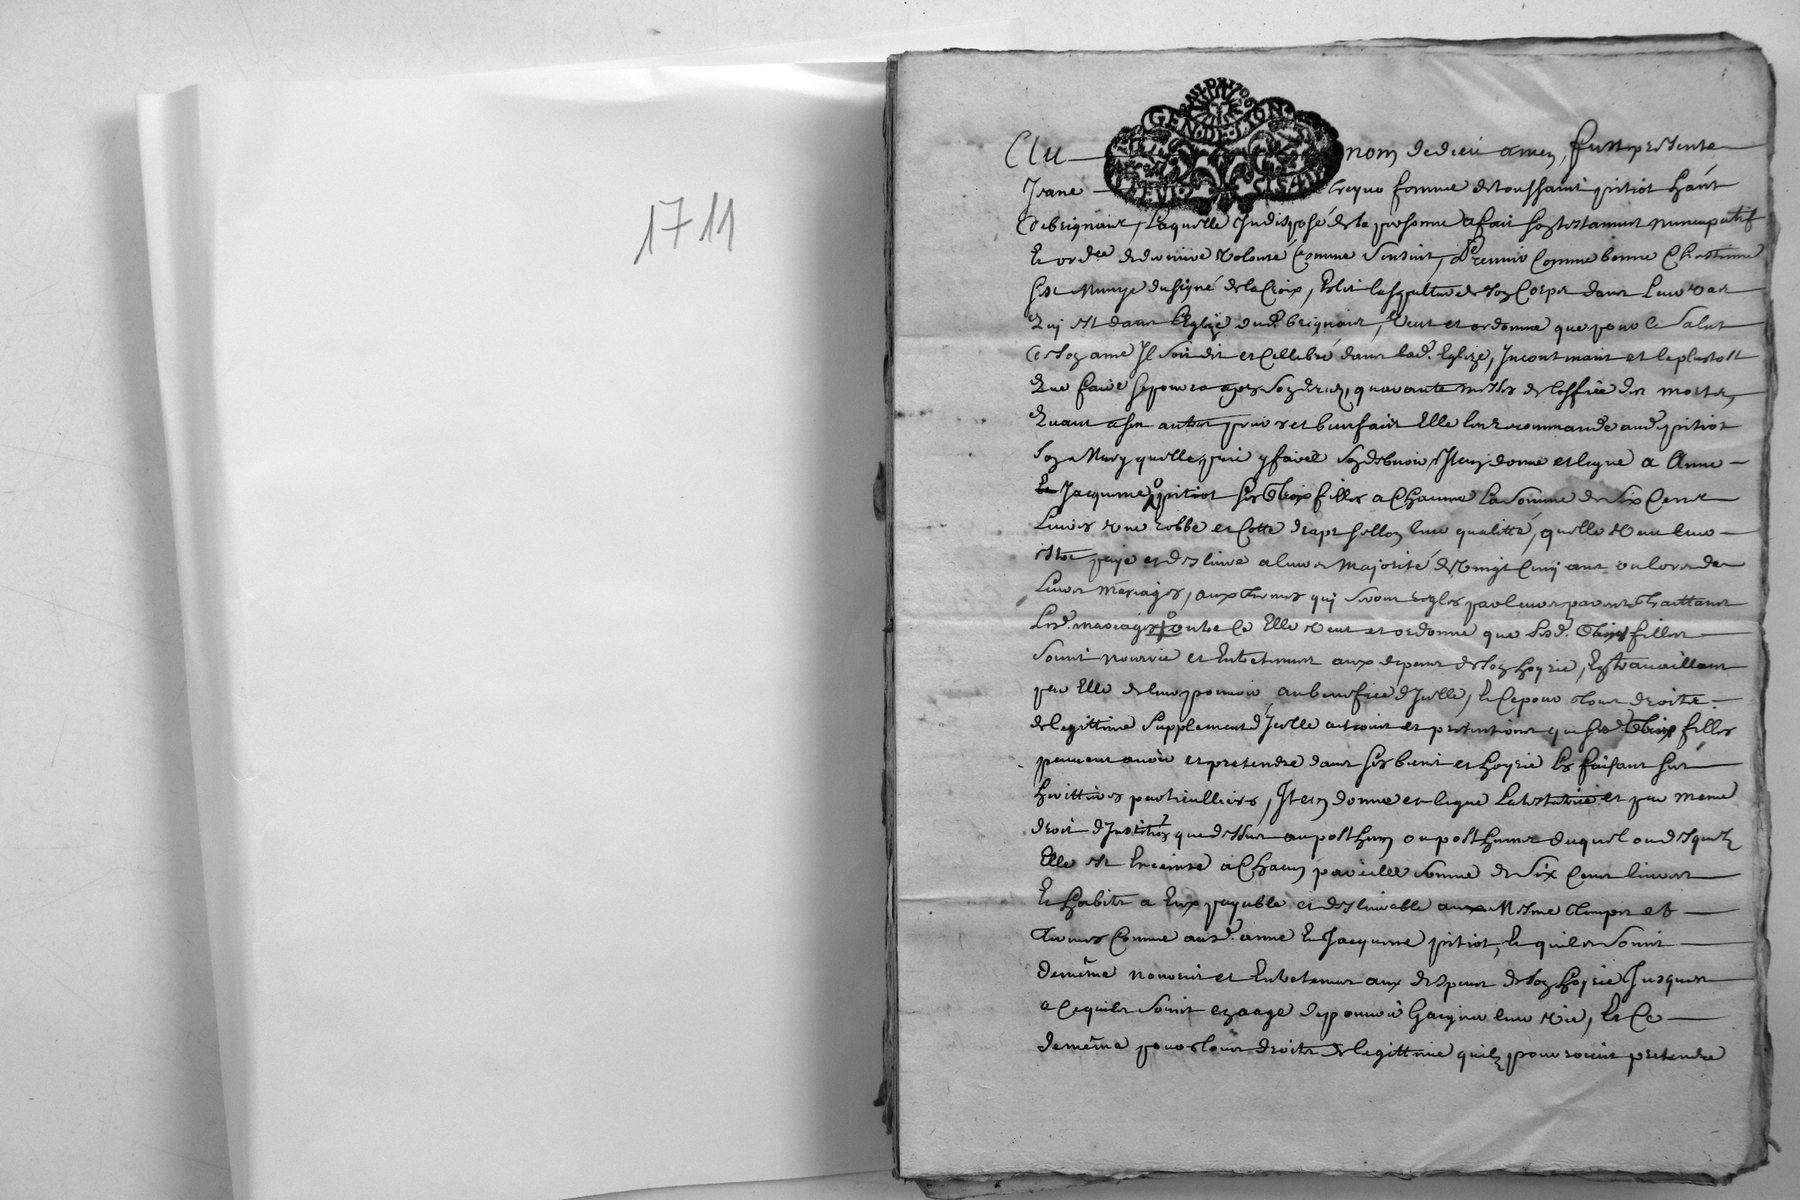 1711
GEN DE LION
Au nom de dieu amen, fust presente
Jeane femme de toussaint pitiot hant
de brignais, laquelle Indisposé de sa personne a fait son testament nuncupatif
et ord.ce de derniere volonté comme sensuit, Premier comme bonne Chrestienne
sest munye du signe de la Croix, Eslit la sepulture de son Corps dans leur vas
qui est dans leglize dud. brignais, veut et ordonne que pour le salut
de son ame Il soit dit et cellebré dans lad. Eglize, Incontinant et le plustost
que faire se poura apres son deces, quarante messes de loffice des morts,
quant a ses autres prieres et bienfaits Elle les recommande aud. pitiot
son mary quelle prie y faire son debvoir, Item donne et legue a Anne
et Jacqueme pitiot ses filles a chacune la somme de six cens
livres une robbe et cotte drapt sellon leur qualitté, quelle veut leur
estre payé et deslivré a leurs majorité de vingt cinq ans ou lors de
leurs mariages, aux termes qui seront reglés par leurs parents traittant
lesd. mariages outre ce Elle veut et ordonne que sesd. filles
soient nourrie et Entretenues aux depens de son hoyrie, En travaillant
par Elle de leur pouvoir au benefice dicelle, et ce pour tous droits
de legittime supplement dicelle actions et pretentions que sesd. filles
peuvent avoir et pretendre dans ses biens et hoyrie les faisant ses
herittieres particullieres, Item donne et legue la testatrice et par meme
droit dinstit.on que dessus au posthum ou posthumes duquel ou desquels
Elle est Enceinte a chacun pareille somme de six cens livres
et habits a Eux payable et deslivrable aux mesme temps et
termes comme ausd. anne et Jacqueme pitiot, et quils soient
de même nourris et Entretenus aux despens de son hoyrie Jusques
a ce quils soient en aage de pouvoir gaigner leur vie, Et ce
de même pour tous droits de legittime quils pourroient pretendre